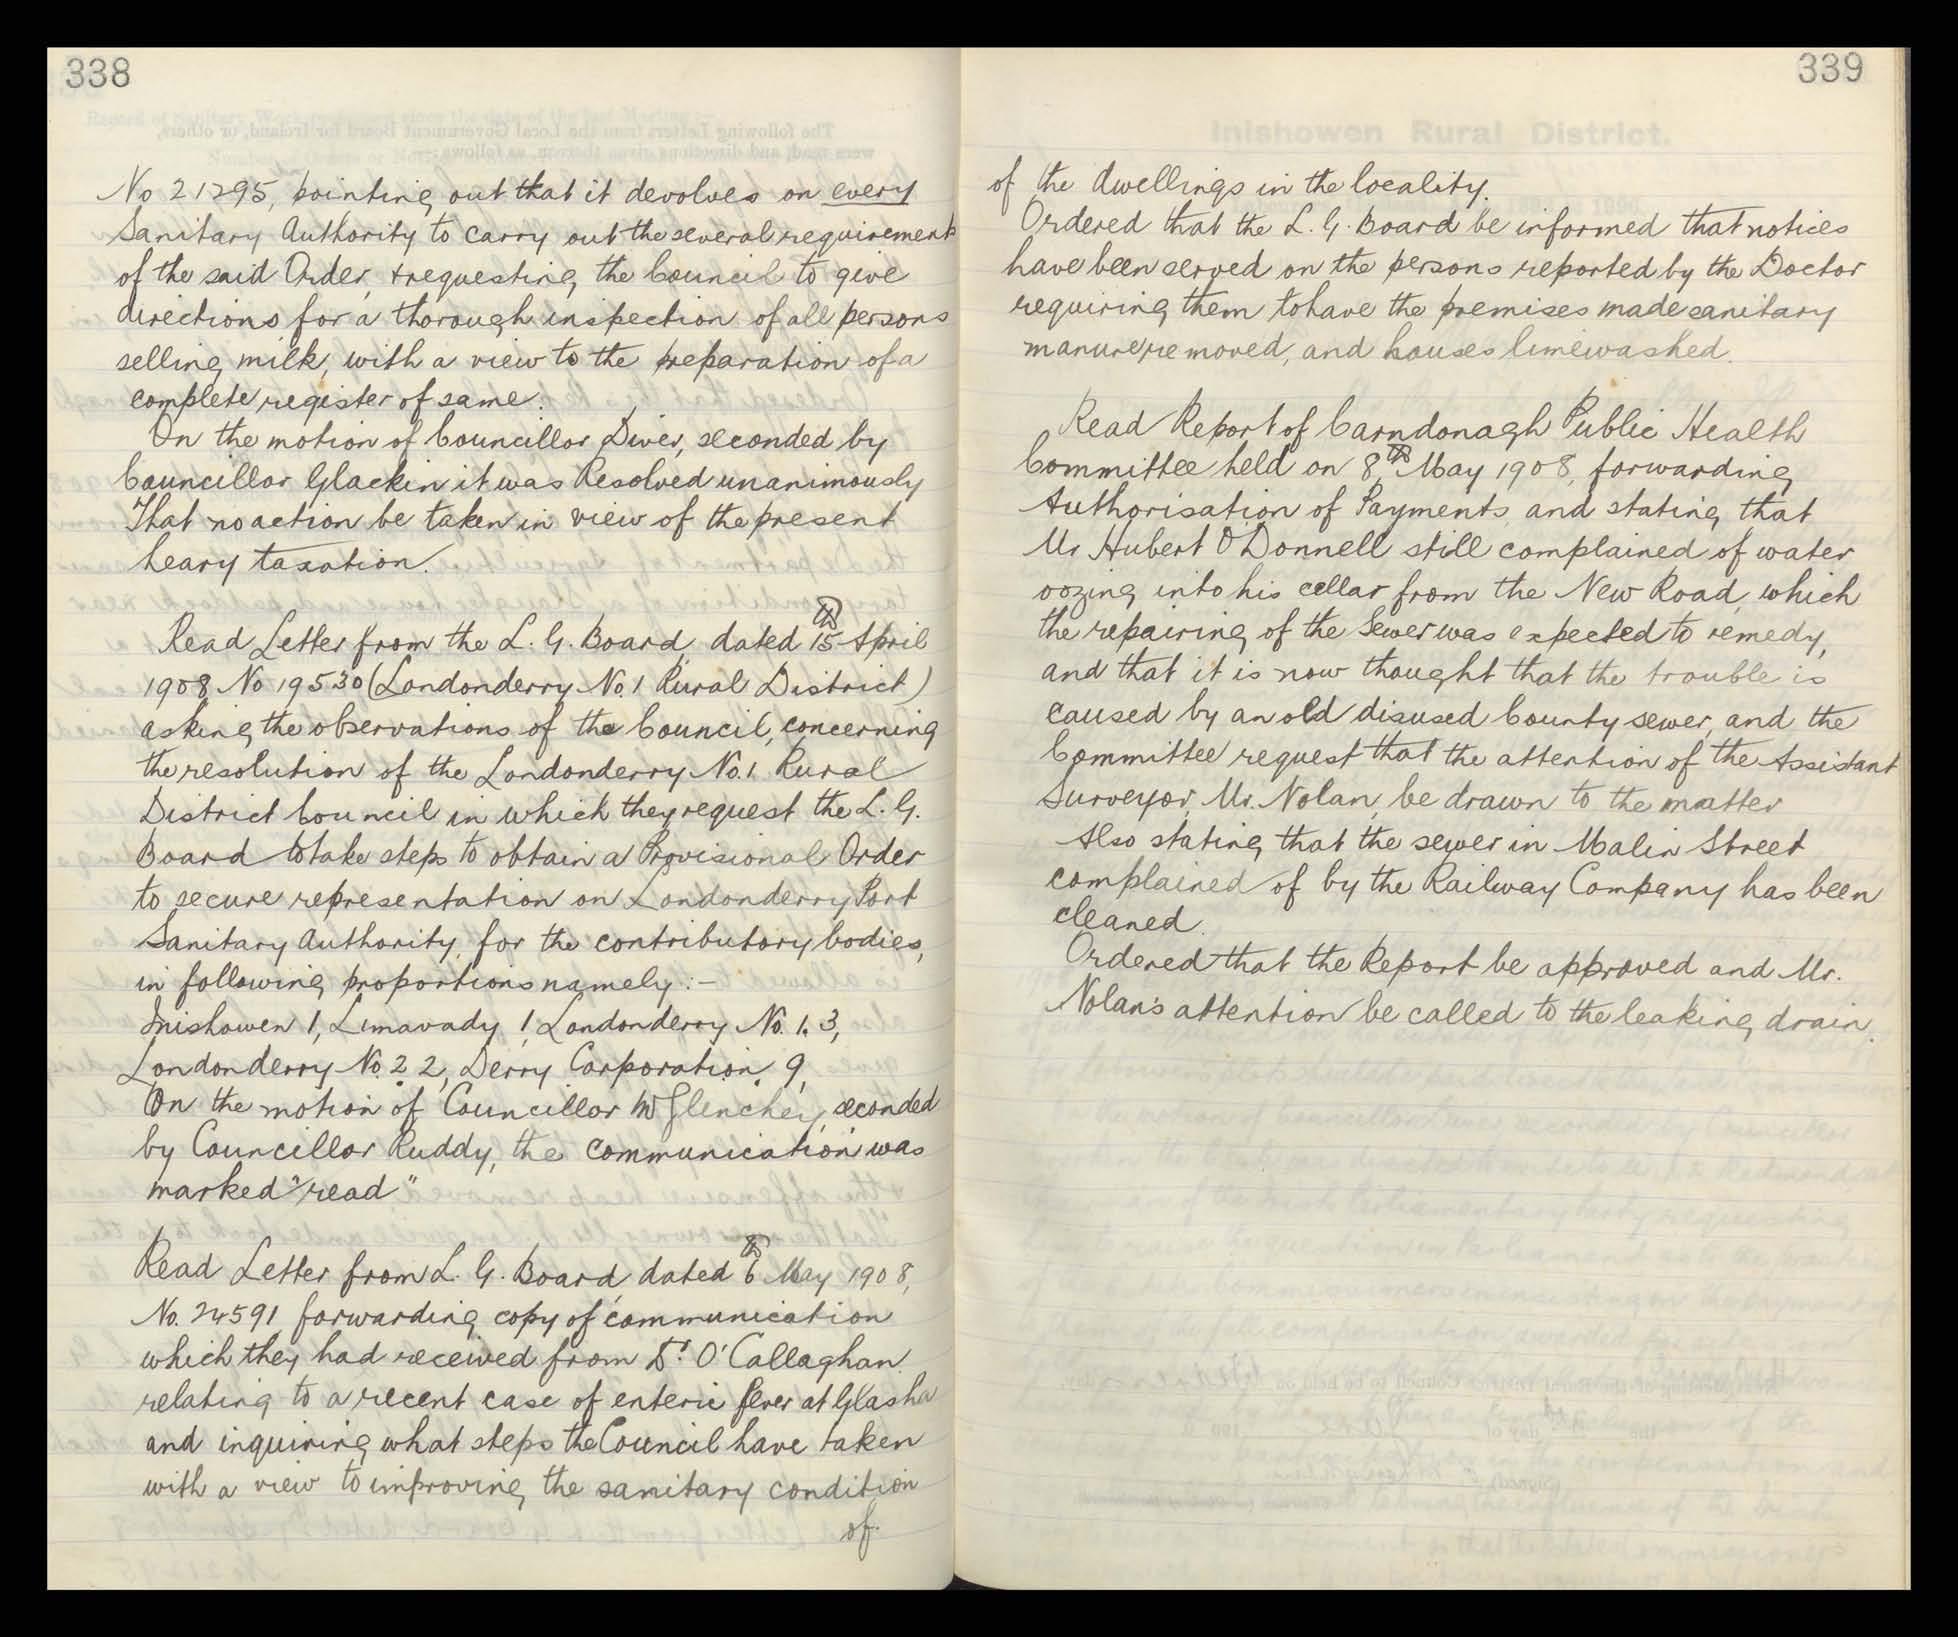 338
No 21295, pointing out that it devolves on every
Sanitary Authority to carry out the several requirements
of the said Order, & requesting the Council to give
directions for a thorough inspection of all persons
selling milk, with a view to the preparation of a
complete register of same.
On the motion of Councillor Diver, seconded by
Councillor Glackin it was Resolved unanimously
That no action be taken in view of the present
heavy taxation.
Read Letter from the L. G. Board, dated 15th April
1908 No 19530 (Londonderry No. 1 Rural District)
asking the observations of the Council, concerning
the resolution of the Londonderry No. 1 Rural
District Council in which they request the L. G.
Board to take steps to obtain a Provisional Order
to secure representation on Londonderry Port
Sanitary Authority, for the contributory bodies,
in following proportions namely:-
Inishowen 1, Limavady 1, Londonderry No. 1. 3,
Londonderry No. 2 2, Derry Corporation 9,
On the motion of Councillor McGlenchey, seconded
by Councillor Ruddy, the communication was
marked "read"
Read Letter from L. G. Board, dated 6th May 1908,
No. 24591 forwarding copy of communication
which they had received from Dr. O'Callaghan
relating to a recent case of enteric fever at Glasha
and inquiring what steps the Council have taken
with a view to improving the sanitary condition
of
339
of the dwellings in the locality.
Ordered that the L. G. Board be informed that notices
have been served on the persons reported by the Doctor
requiring them to have the premises made sanitary
manure removed, and houses limewashed.
Read Report of Carndonagh Public Health
Committee held on 8th May 1908, forwarding
Authorisation of Payments, and stating that
Mr Hubert O'Donnell still complained of water
oozing into his cellar from the New Road, which
the repairing of the Sewer was expected to remedy,
and that it is now thought that the trouble is
caused by an old disused County sewer, and the
Committee request that the attention of the Assistant
Surveyor, Mr. Nolan, be drawn to the matter
Also stating that the sewer in Malin Street
complained of by the Railway Company has been
cleaned.
Ordered that the Report be approved and Mr.
Nolan's attention be called to the leaking drain.